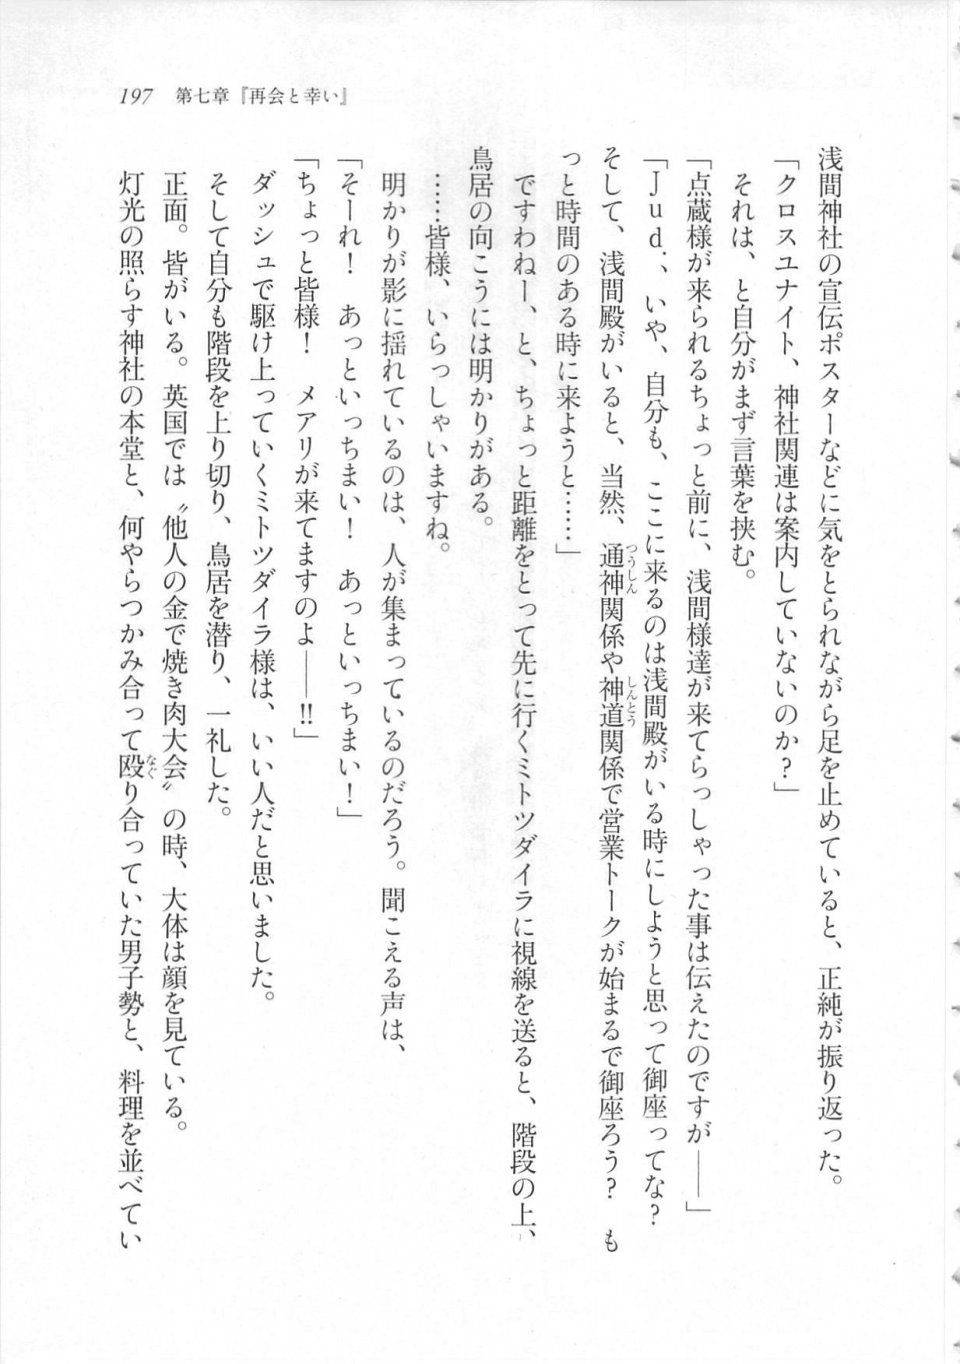 197　第七章『再会と幸い』
浅間神社の宣伝ポスターなどに気をとられながら足を止めていると、正純が振り返った。
「クロスユナイト、神社関連は案内していないのか？」
それは、と自分がまず言葉を挟む。
「点蔵様が来られるちょっと前に、浅間様達が来てらっしゃった事は伝えたのですが――」
「Ｊｕｄ．、いや、自分も、ここに来るのは浅間殿がいる時にしようと思って御座ってな？
そして、浅間殿がいると、当然、通神関係や神道関係で営業トークが始まるで御座ろう？　も
っと時間のある時に来ようと……」
ですわねー、と、ちょっと距離をとって先に行くミトツダイラに視線を送ると、階段の上、
鳥居の向こうには明かりがある。
……皆様、いらっしゃいますね。
明かりが影に揺れているのは、人が集まっているのだろう。聞こえる声は、
「そーれ！　あっといっちまい！　あっといっちまい！」
「ちょっと皆様！　メアリが来てますのよ――!!」
ダッシュで駆け上っていくミトツダイラ様は、いい人だと思いました。
そして自分も階段を上り切り、鳥居を潜り、一礼した。
正面。皆がいる。英国では〝他人の金で焼き肉大会〟の時、大体は顔を見ている。
灯光の照らす神社の本堂と、何やらつかみ合って殴り合っていた男子勢と、料理を並べてい